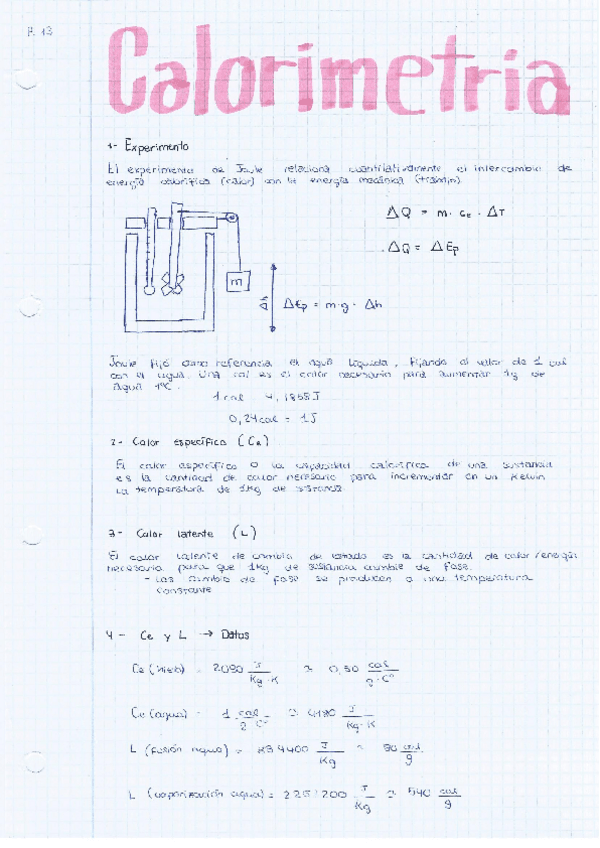 P. 13
Calorimetria
1- Experimento
El experimento de Joule relaciona cuantitativamente el intercambio de
energía calorífica (calor) con la energía mecánica (trabajo)
ΔQ = m · ce · ΔT
ΔQ = ΔEp
m
ΔEp = m · g · Δh
Joule fijó como referencia el agua líquida, fijando al valor de 1 cal
con el agua. Una cal es el calor necesario para aumentar 1g de
agua 1ºC.
1 cal 4,1858J
0,24cal = 1J
2- Calor específico (Ce)
El calor específico o la capacidad calorífica de una sustancia
es la cantidad de calor necesario para incrementar en un Kelvin
la temperatura de 1Kg de sustancia
3- Calor latente (L)
El calor latente de cambio de estado es la cantidad de calor/energía
necesaria para que 1Kg de sustancia cambie de fase.
- Los cambio de fase se producen a una temperatura
constante
4- Ce y L → Datos
Ce (hielo) = 2090 J/Kg·K ≈ 0,50 cal/g·Cº
Ce (agua) = 1 cal/2 Cº ≈ 4180 J/Kg·K
L (fusión agua) = 334400 J/Kg ≈ 80 cal/g
L (vaporización agua) = 2257200 J/Kg ≈ 540 cal/g